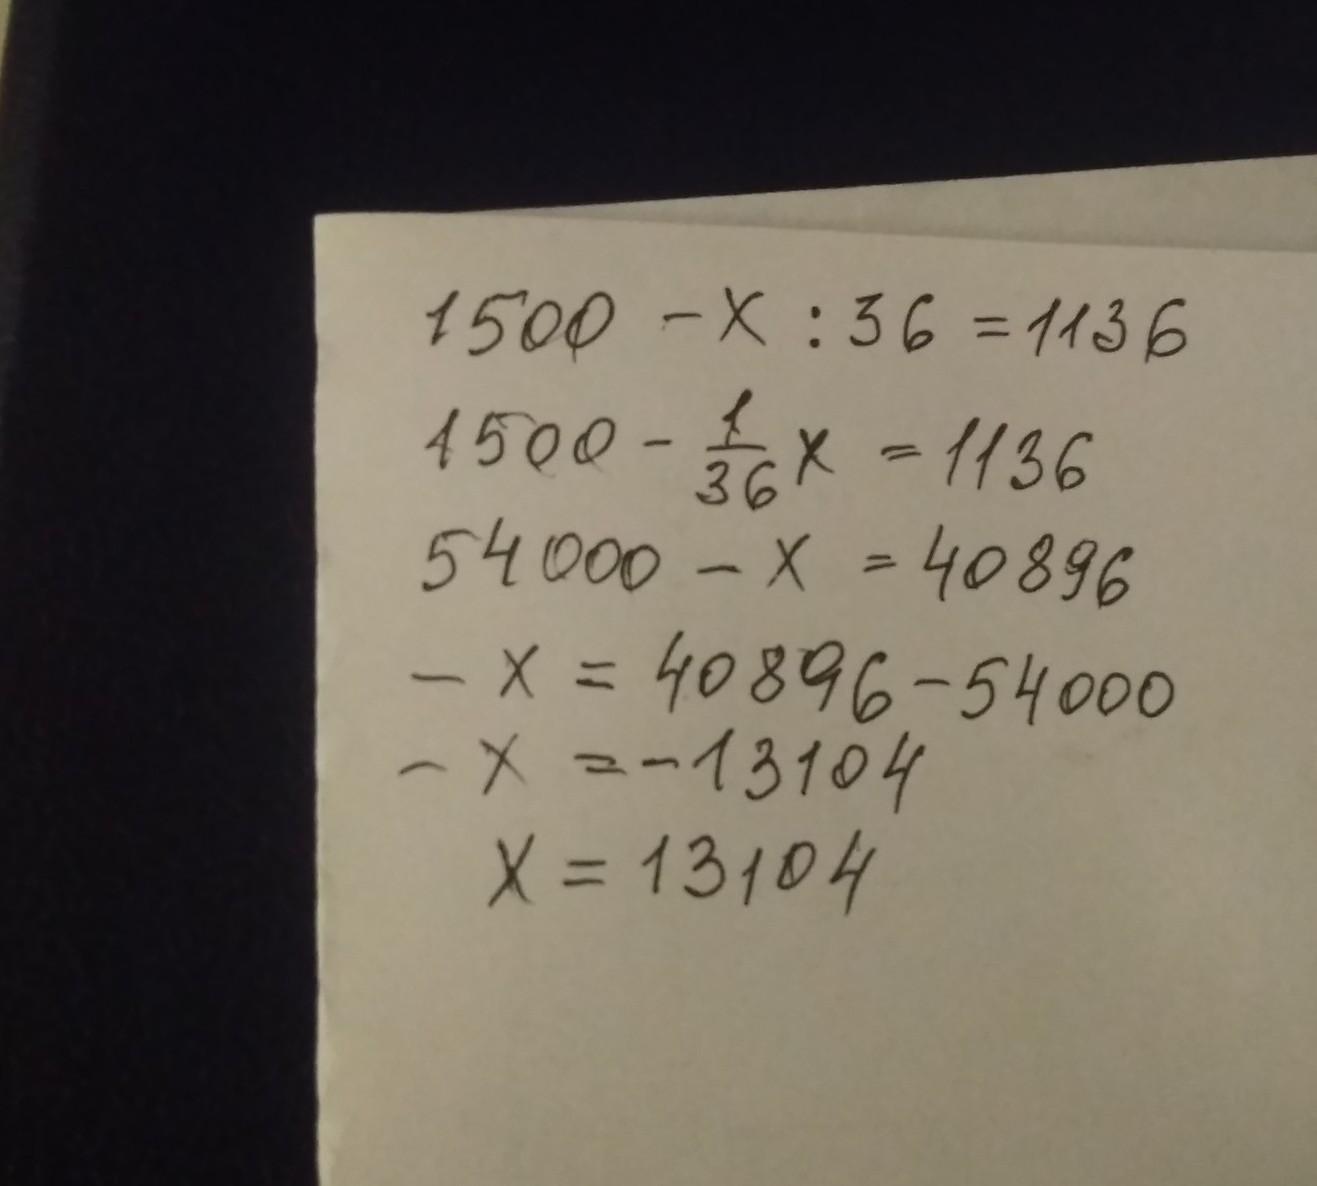 1500 - x : 36 = 1136
1500 - 1/36 x = 1136
54000 - x = 40896
- x = 40896 - 54000
- x = -13104
x = 13104